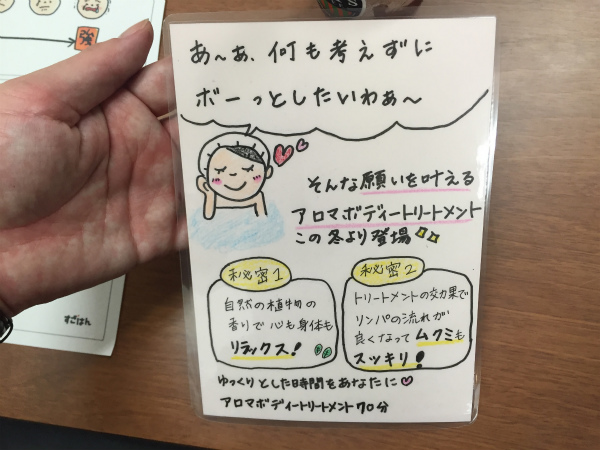 強
あ〜あ、何も考えずに
ボーっとしたいわぁ〜
そんな願いを叶える
アロマボディートリートメント
この冬より登場
秘密1
自然の植物の
香りで心も身体も
リラックス!
秘密2
トリートメントの効果で
リンパの流れが
良くなって ムクミも
スッキリ!
ゆっくりとした時間をあなたに♡
アロマボディートリートメント70分
すごはん